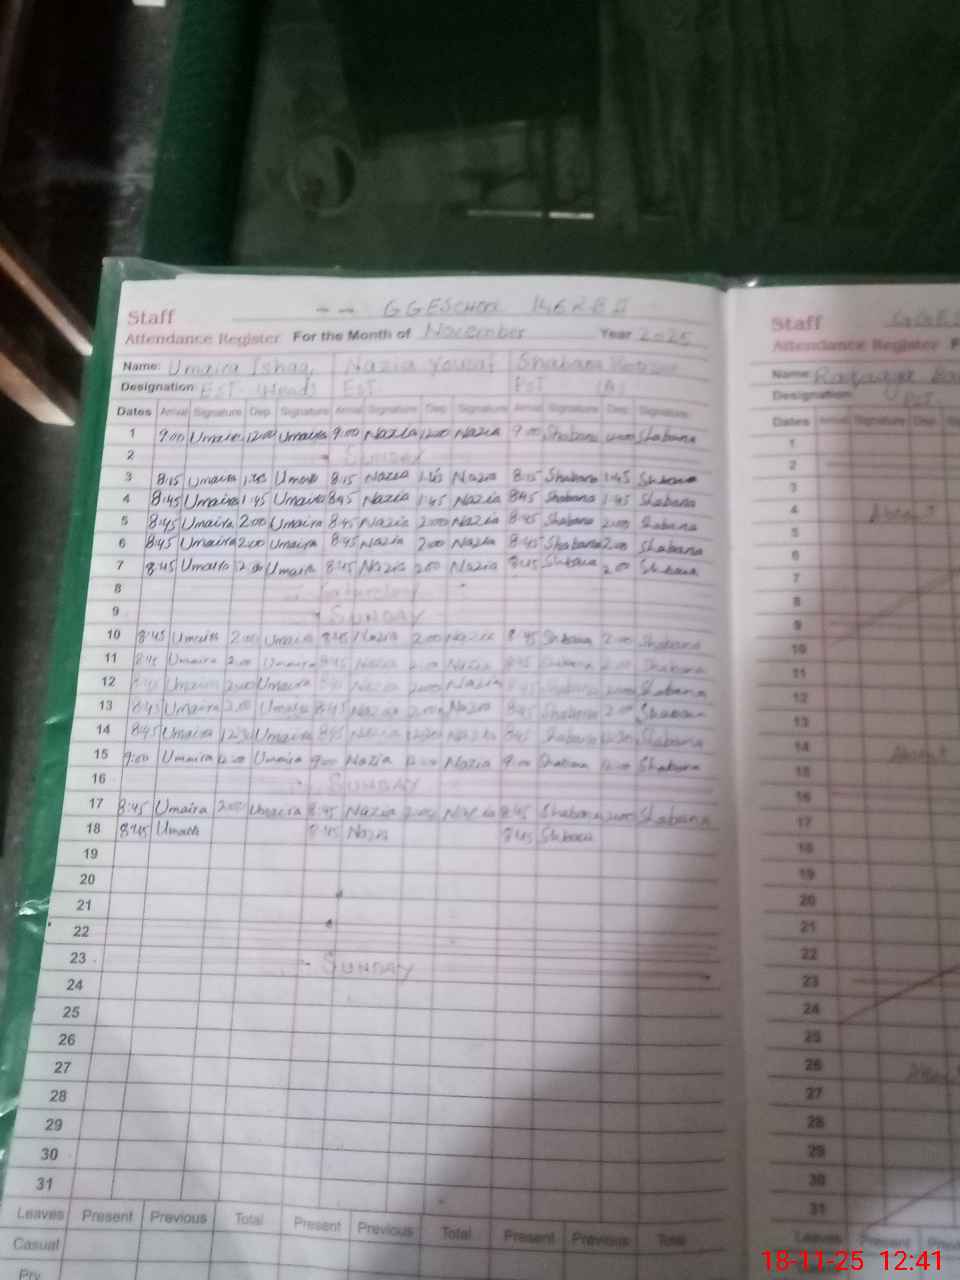 GGESCHOOL
Staff
Attendance Register For the Month of November Year 2025
Name: Umaira Ishaq Nazia Yousaf Shabana
Designation EST (Head) EST PST
Dates Arrival Signature Dep. Signature Arrival Signature Dep. Signature Arrival Signature Dep. Signature
1 9:00 Umaira 12:00 Umaira 9:00 Nazia 12:00 Nazia 9:00 Shabana 12:00 Shabana
2 SUNDAY
3 8:15 Umaira 1:45 Umaira 8:15 Nazia 1:45 Nazia 8:15 Shabana 1:45 Shabana
4 8:45 Umaira 1:45 Umaira 8:45 Nazia 1:45 Nazia 8:45 Shabana 1:45 Shabana
5 8:45 Umaira 2:00 Umaira 8:45 Nazia 2:00 Nazia 8:45 Shabana 2:00 Shabana
6 8:45 Umaira 2:00 Umaira 8:45 Nazia 2:00 Nazia 8:45 Shabana 2:00 Shabana
7 8:45 Umaira 2:00 Umaira 8:45 Nazia 2:00 Nazia 8:45 Shabana 2:00 Shabana
8 Saturday
9 SUNDAY
10 8:45 Umaira 2:00 Umaira 8:45 Nazia 2:00 Nazia 8:45 Shabana 2:00 Shabana
11 8:45 Umaira 2:00 Umaira 8:45 Nazia 2:00 Nazia 8:45 Shabana 2:00 Shabana
12 8:45 Umaira 2:00 Umaira 8:45 Nazia 2:00 Nazia 8:45 Shabana 2:00 Shabana
13 8:45 Umaira 2:00 Umaira 8:45 Nazia 2:00 Nazia 8:45 Shabana 2:00 Shabana
14 8:45 Umaira 12:30 Umaira 8:45 Nazia 12:30 Nazia 8:45 Shabana 12:30 Shabana
15 9:00 Umaira 12:00 Umaira 9:00 Nazia 12:00 Nazia 9:00 Shabana 12:00 Shabana
16 SUNDAY
17 8:45 Umaira 2:00 Umaira 8:45 Nazia 2:00 Nazia 8:45 Shabana 2:00 Shabana
18 8:45 Umaira 8:45 Nazia 8:45 Shabana
19
20
21
22
23 SUNDAY
24
25
26
27
28
29
30
31
Leaves Present Previous Total Present Previous Total Present Previous Total
Casual
Staff
Attendance Register F
Name:
Designation
Dates Signature Dep
1
2
3
4 Absent
5
6
7
8
9
10
11
12
13
14 Absent
15
16
17
18
19
20
21
22
23
24
25
26 Absent
27
28
29
30
31
Leaves Present
18-11-25 12:41